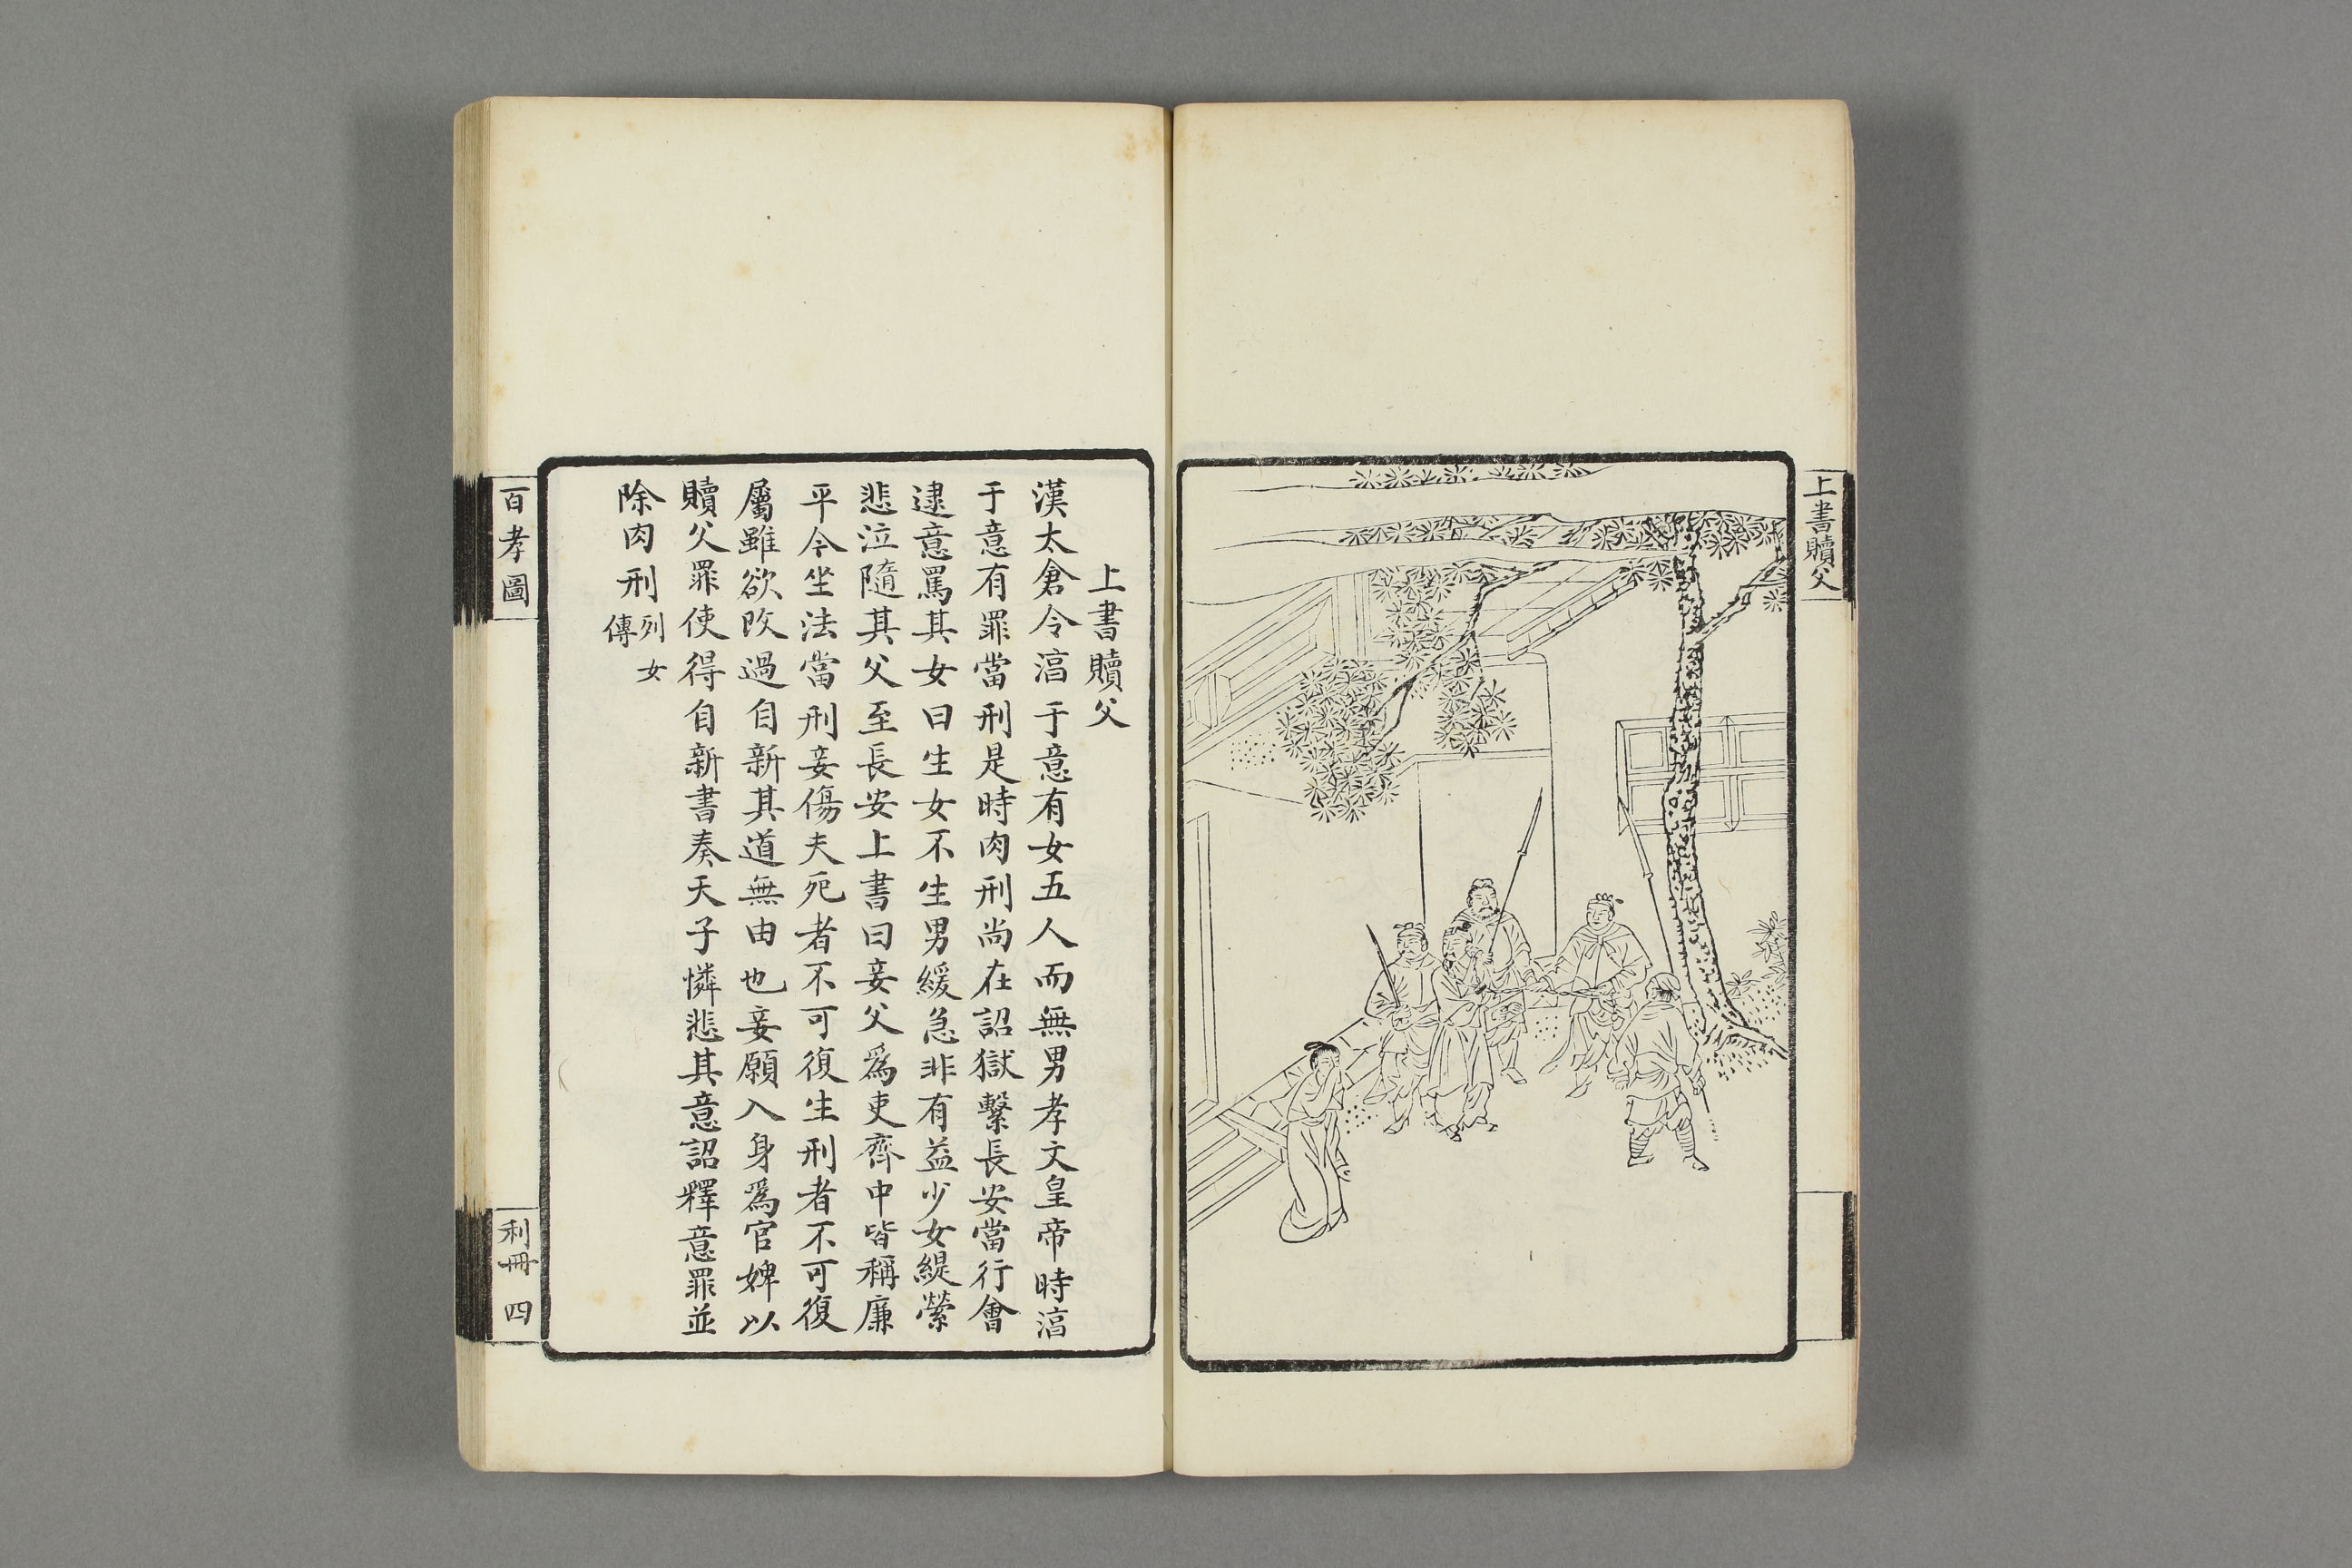 上書贖父
上書贖父
漢太倉令湻于意有女五人而無男孝文皇帝時湻
于意有罪當刑是時肉刑尚在詔獄繫長安當行會
逮意罵其女曰生女不生男緩急非有益少女緹縈
悲泣隨其父至長安上書曰妾父爲吏齊中皆稱廉
平今坐法當刑妾傷夫死者不可復生刑者不可復
屬雖欲改過自新其道無由也妾願入身爲官婢以
贖父罪使得自新書奏天子憐悲其意詔釋意罪並
除肉刑列女
傳
百孝圖
利冊 四